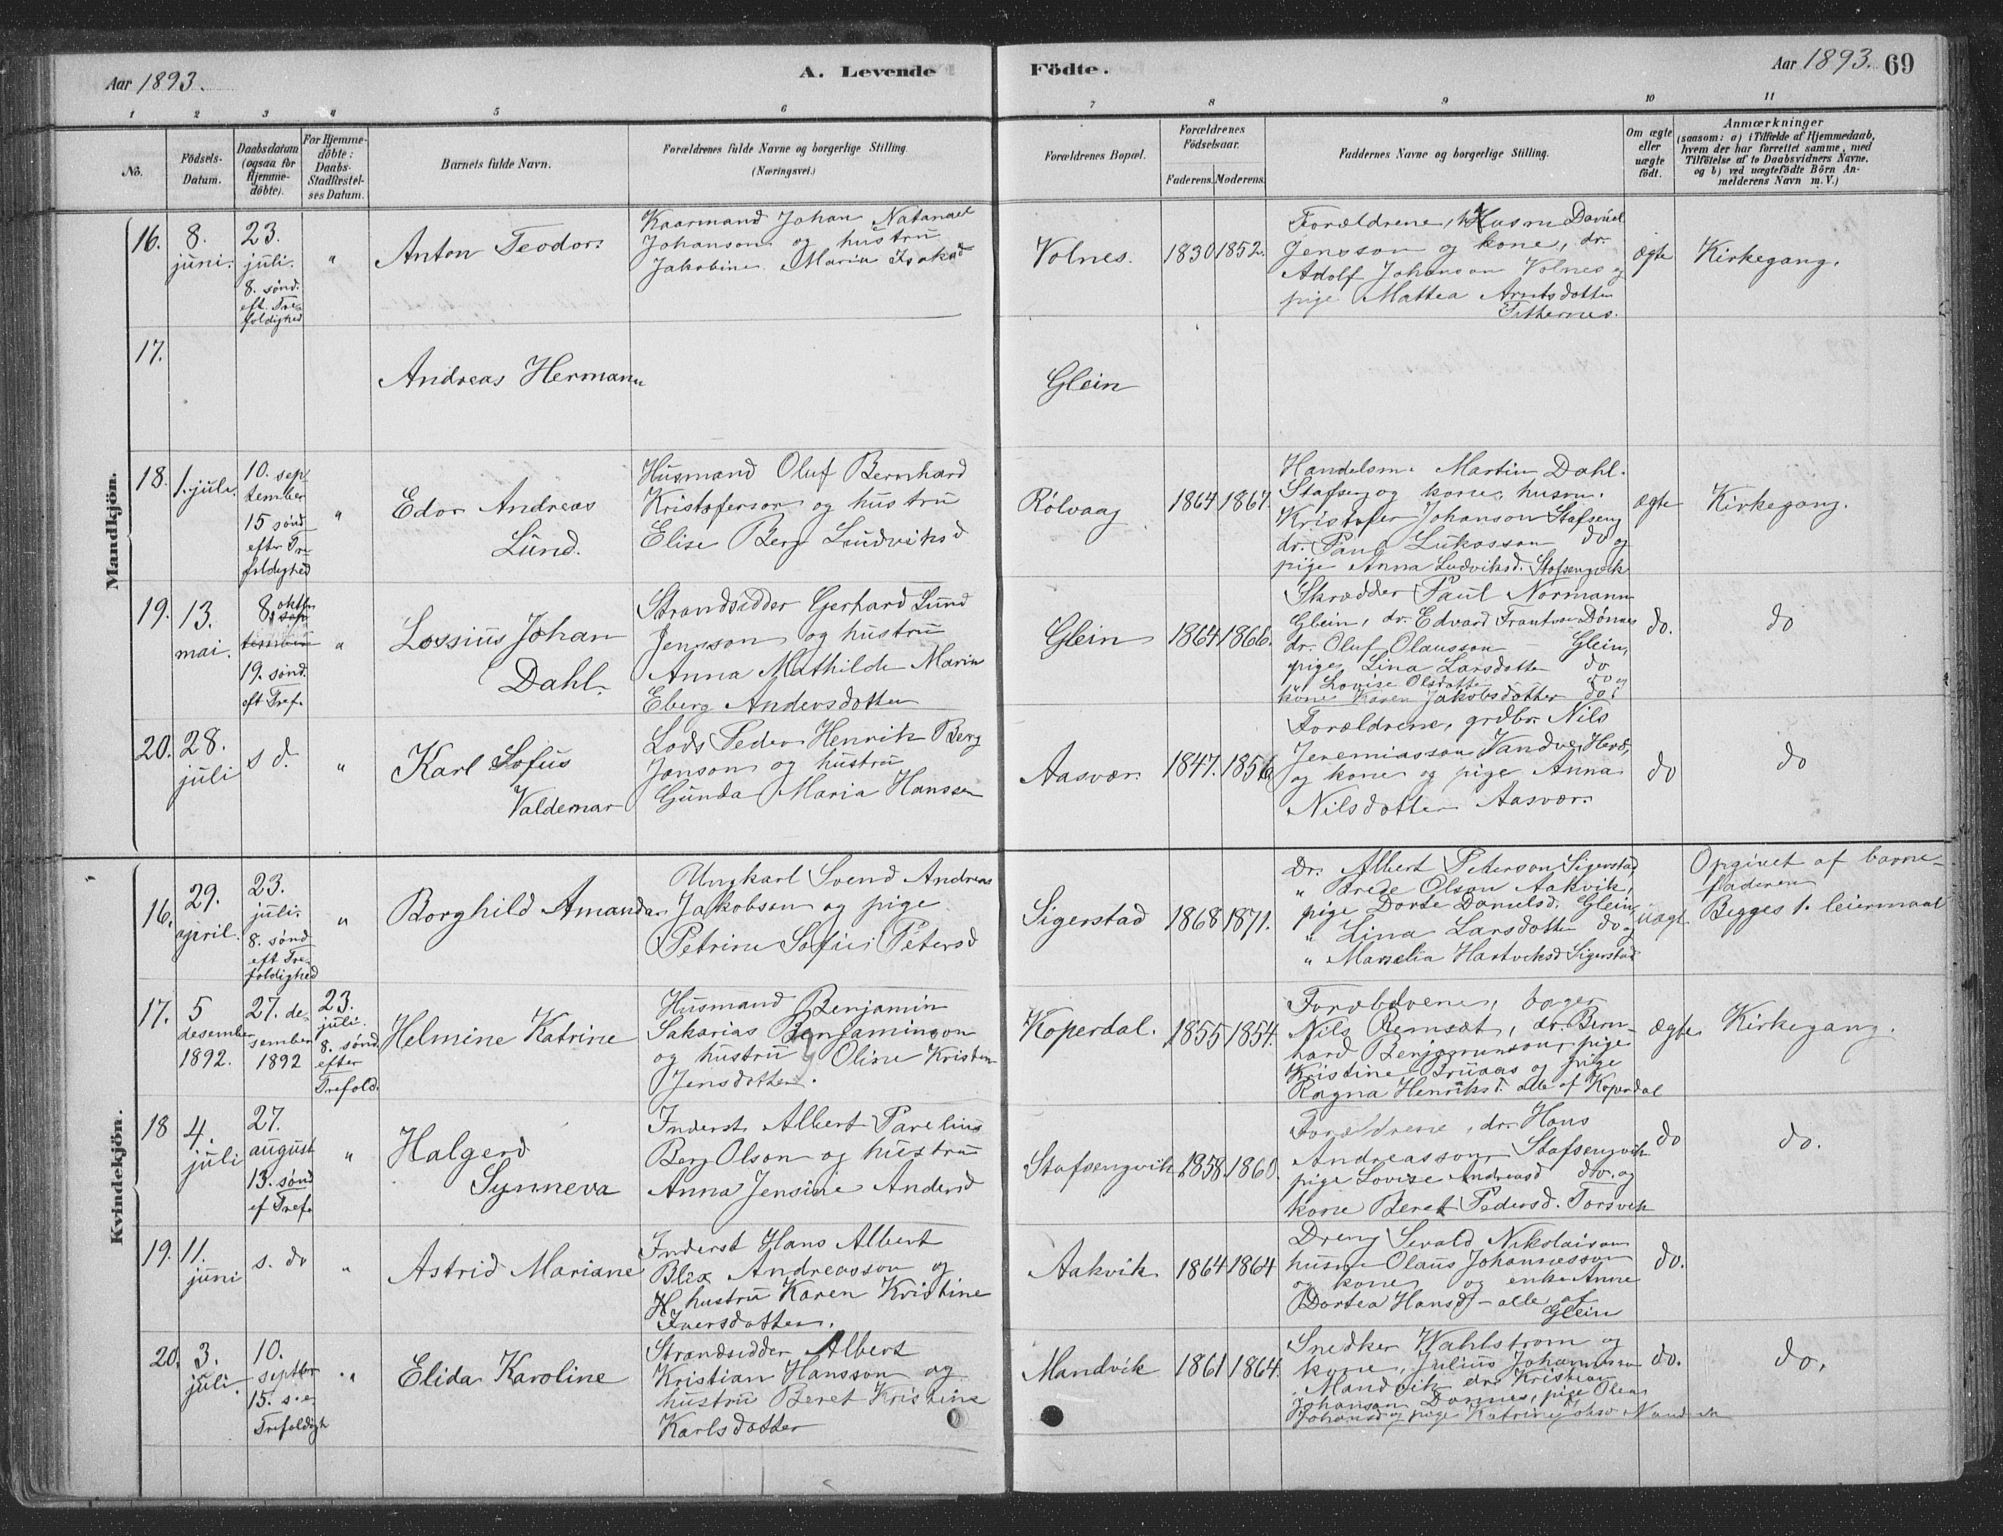 Aar 1893.
A. Levende
Födte.
Aar 1893.
69
1 2 3 4 5 6 7 8 9 10 11
No.
Födsels-
Datum.
Daabsdatum
(ogsaa for
Hjemme-
döbte).
For Hjemme-
döbte:
Daabs-
Stadfæstel-
ses Datum.
Barnets fulde Navn.
Forældrenes fulde Navne og borgerlige Stilling.
(Næringsvei.)
Forældrenes Bopæl.
Forældrenes
Födselsaar.
Faderens. Moderens.
Faddernes Navne og borgerlige Stilling.
Om ægte
eller
uægte
födt.
Anmærkninger
(saasom: a) i Tilfælde af Hjemmedaab,
hvem der har forrettet samme, med
Tilföielse af to Daabsvidners Navne,
og b) ved uægtefödte Börn An-
melderens Navn m. V.)
Mandkjön.
16.
8.
juni.
23.
juli.
8. sønd.
eft. Tre-
foldighed
"
Anton Teodor
Kaarmand Johan Natanael
Johanson og hustru
Jakobine Maria Isaksd
Volnes.
1830
1852.
Forældrene, Husm Daniel
Jensson og kone, dr.
Adolf Johanson Volnes og
pige Mattea Arntsdotter
ægte
Kirkegang.
17.
Andreas Hermann
Glein
18.
1. juli.
10. sep-
tember
15 sønd
efter Tr-
foldighed
"
Edor Andreas
Lund.
Husmand Oluf Bernhard
Kristoferson og hustru
Elise Berg Ludviksd
Rölvaag
1864
1867.
Handelsm. Martin Dahl.
Stafseng og kone, husm.
Kristofer Johanson Stafseng
dr. Paul Lukasson do og
pige Anna Ludviksd. Stafsengvik
ægte
Kirkegang.
19.
13.
mai.
8. oktbr
19. sønd.
eft Tref.
"
Lossius Johan
Dahl.
Strandsidder Gerhard Lund
Jensson og hustru
Anna Mathilde Marin
Eberg Andersdotter
Glein
1864
1866.
Skrædder Paul Normann
Glein, dr. Edvard Dønnes
dr. Oluf Olausson Glein,
pige Lina Larsdotter do
" Lovise Olsdotter do og
kone Karen Jakobsdotter do.
do.
do
20.
28.
juli
s d.
"
Karl Sofus
Valdemar
Lods Peder Henrik Berg
Janson og hustru
Gunda Maria Hanssen
Aasvær.
1847.
1856
Forældrene, grdbr. Nils
Jeremiasson Vandve, Herø,
og kone og pige Anna
Nilsdotter Aasvær.
do
do
Kvindekjön.
16.
29.
april.
23.
juli.
8. sønd
eft Tre-
foldighed
"
Borghild Amanda
Ungkarl Svend Andreas
Jakobson og pige
Petrine Sofie Petersd
Sigerstad
1868
1871.
Dr. Albert Peterson Sigerstad
" Olson Aakvik,
pige Dorte Danielsd. Glein,
" Lina Larsdotter do og
" Hartviksd Sigerstad
uægt.
Opgivet af barne-
faderen
Begges 1. leiermaal
17.
5
desember
1892.
27. de-
sember
1892
23.
juli.
8. sønd
efter
Trefold.
Helmine Katrine
Husmand Benjamin
Sakarias Benjaminson
og hustru Oline Kristin
Jensdotter.
Koperdal.
1855
1854.
Forældrene,
Nils Remsæt, dr. Bern-
hard Benjaminson, pige
Kristine og pige
Ragna Henriksd. alle af Koperdal
ægte
Kirkegang.
18
4.
juli
27.
august
13. sønd
ef Tref.
"
Halgerd
Synneva
Inderst Albert Parelius
Berg Olson og hustru
Anna Jensine Andersd
Stafsengvik
1858.
1860.
Forældrene, dr. Hans
Andreasson Stafsengvik
pige Lovise Andreasd do. og
kone Beret Pedersd. Torsvik
do
do.
19.
11.
juni
s. do
"
Astrid Mariane
Inderst Hans Albert
Blix Andreasson og
hustru Karen Kristine
Iversdotter.
Aakvik
1864
1864
Dreng Sevald Nikolaison
husm Olaus Johannesson
og kone og enke Anne
Dortea Hansd. - alle af
Glein
do.
20.
3.
juli.
10.
septbr
15. s. e.
Trefoldigh
"
Elida Karoline
Strandsidder Albert
Kristian Hansson og
hustru Beret Kristine
Karlsdotter
Mandvik
1861
1864.
Snedker Wahlstrøm og
kone, Julius
Mandvik, dr. Kristian
Johanson Dønnes, pige Olea
Johansd og pige Katrine
do.
do.